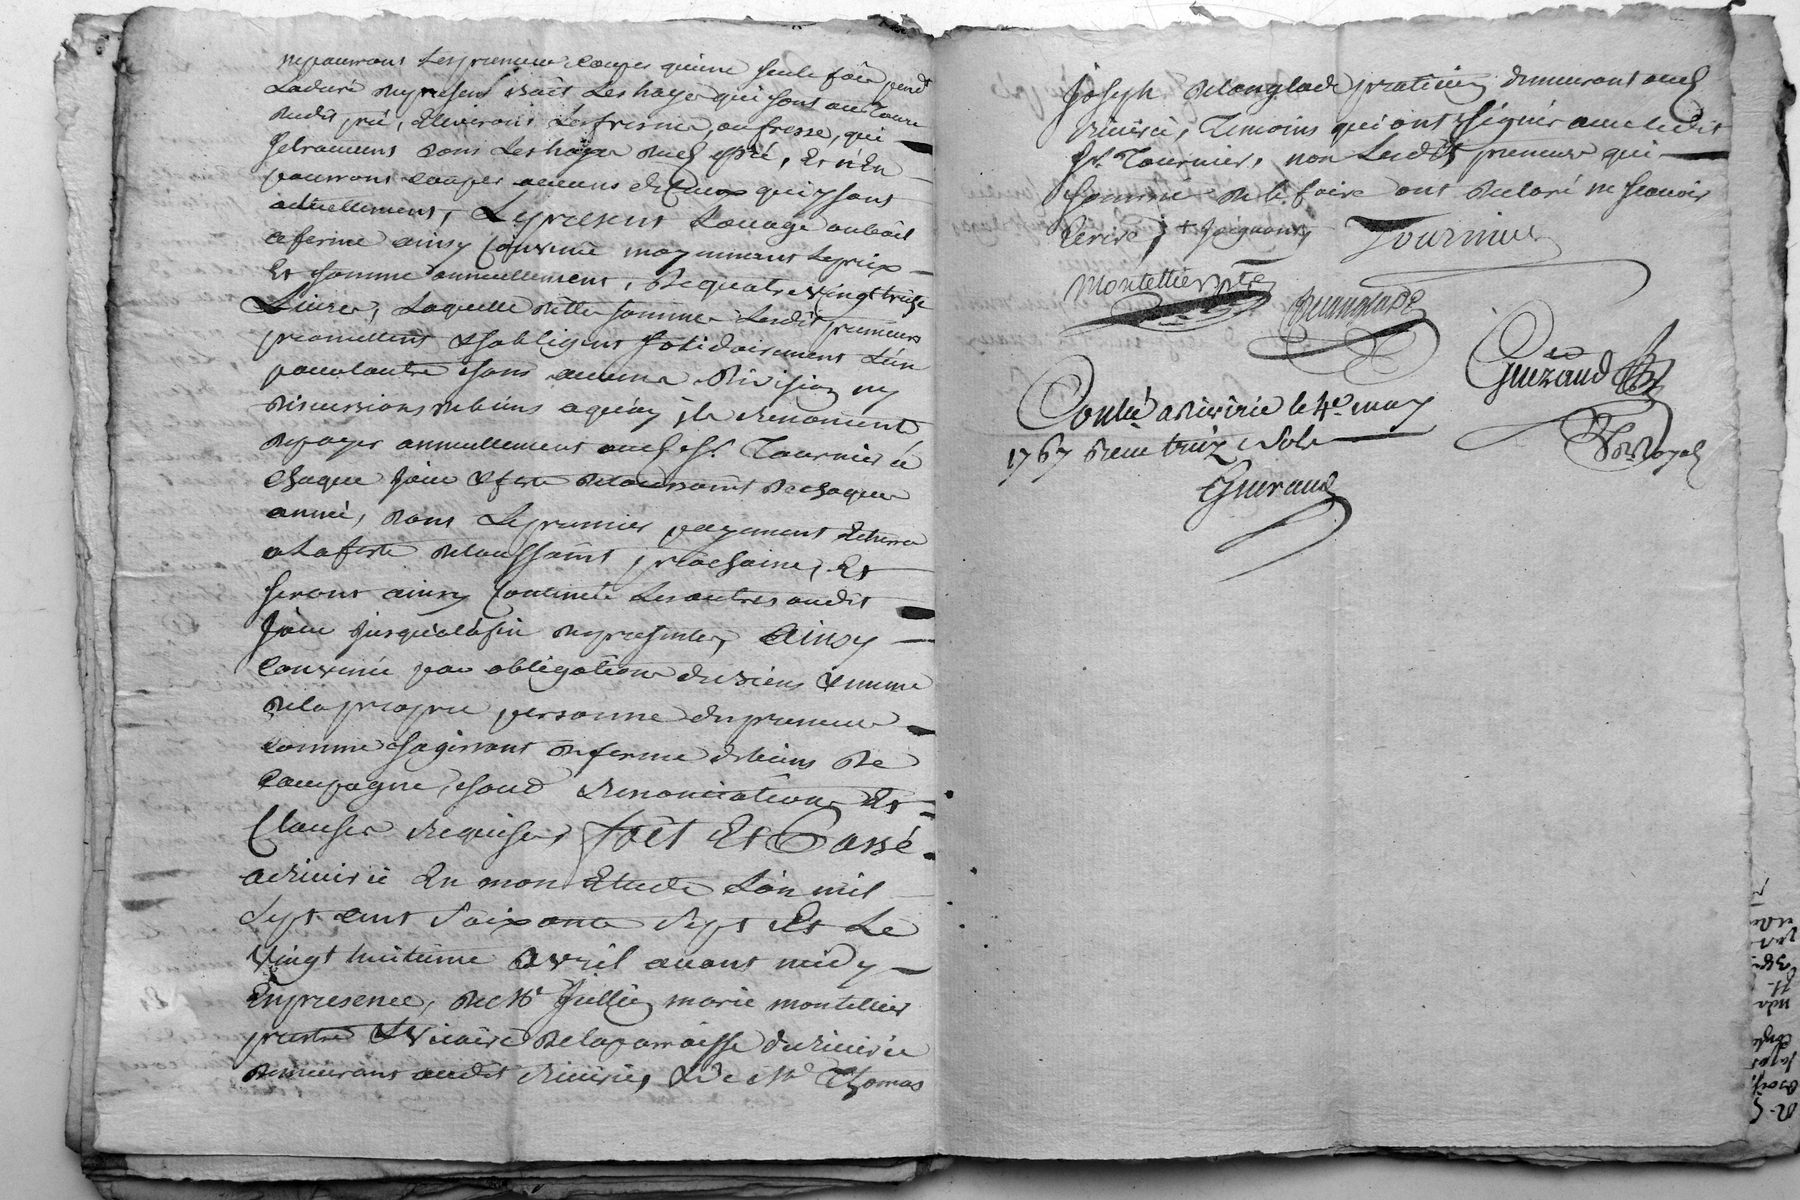 ne pourront Les preneurs couper qu'une seule fois pendt
La durée du present bail Les hayes qui sont au tour
dudit pré, eleveront Les fresnes, ou fresse, qui
se trouvent dans Les hayes dud. pré, Et n'en
pourront couper aucuns de Ceux qui y sont
actuellement, Le present Louage ou bail
a ferme ainsy Convenu moyennant Le prix
Et somme annuellement, de quatre vingt treize
Livres, Laquelle ditte somme Lesdits preneurs
promettent & s'obligent solidairement L'un
pour l'autre sans aucune division ny
discussion de biens a quoy ils renoncent
de payer annuellement aud. Sr. Tournier a
chaque jour & feste de toussaint de chaque
année, dont Le premier payement echerra
a La feste de toussaint prochaine, Et
seront ainsy Continué Les autres audit
jour jusqu'a la fin du present, Ainsy
Convenu par obligation de biens & meme
de la propre personne du preneur
comme s'agissant de ferme de biens de
Campagne, sous renonciations Et
Clauses requises, fait Et Passé
a Rivirie En mon Etude L'an mil
sept cent soixante sept Et Le
vingt huitieme avril avant midy
En presence, de Mr. Jullien marie montellier
prestre & vicaire de la parroisse de Rivirie
demeurant audit Rivirie, & de Mr. Thomas
Joseph Delanglade praticien demeurant aud.
Rivirie, Temoins qui ont signés avec ledit
Sr. Tournier, non Lesdits preneurs qui
sommé de le faire ont declaré ne scavoir
Ecrire,
Tournier
Montellier ptre
Delanglade
Gueraud
Contlé a Rivirie le 4e. may
1767 Receu treize sols
Gueraud